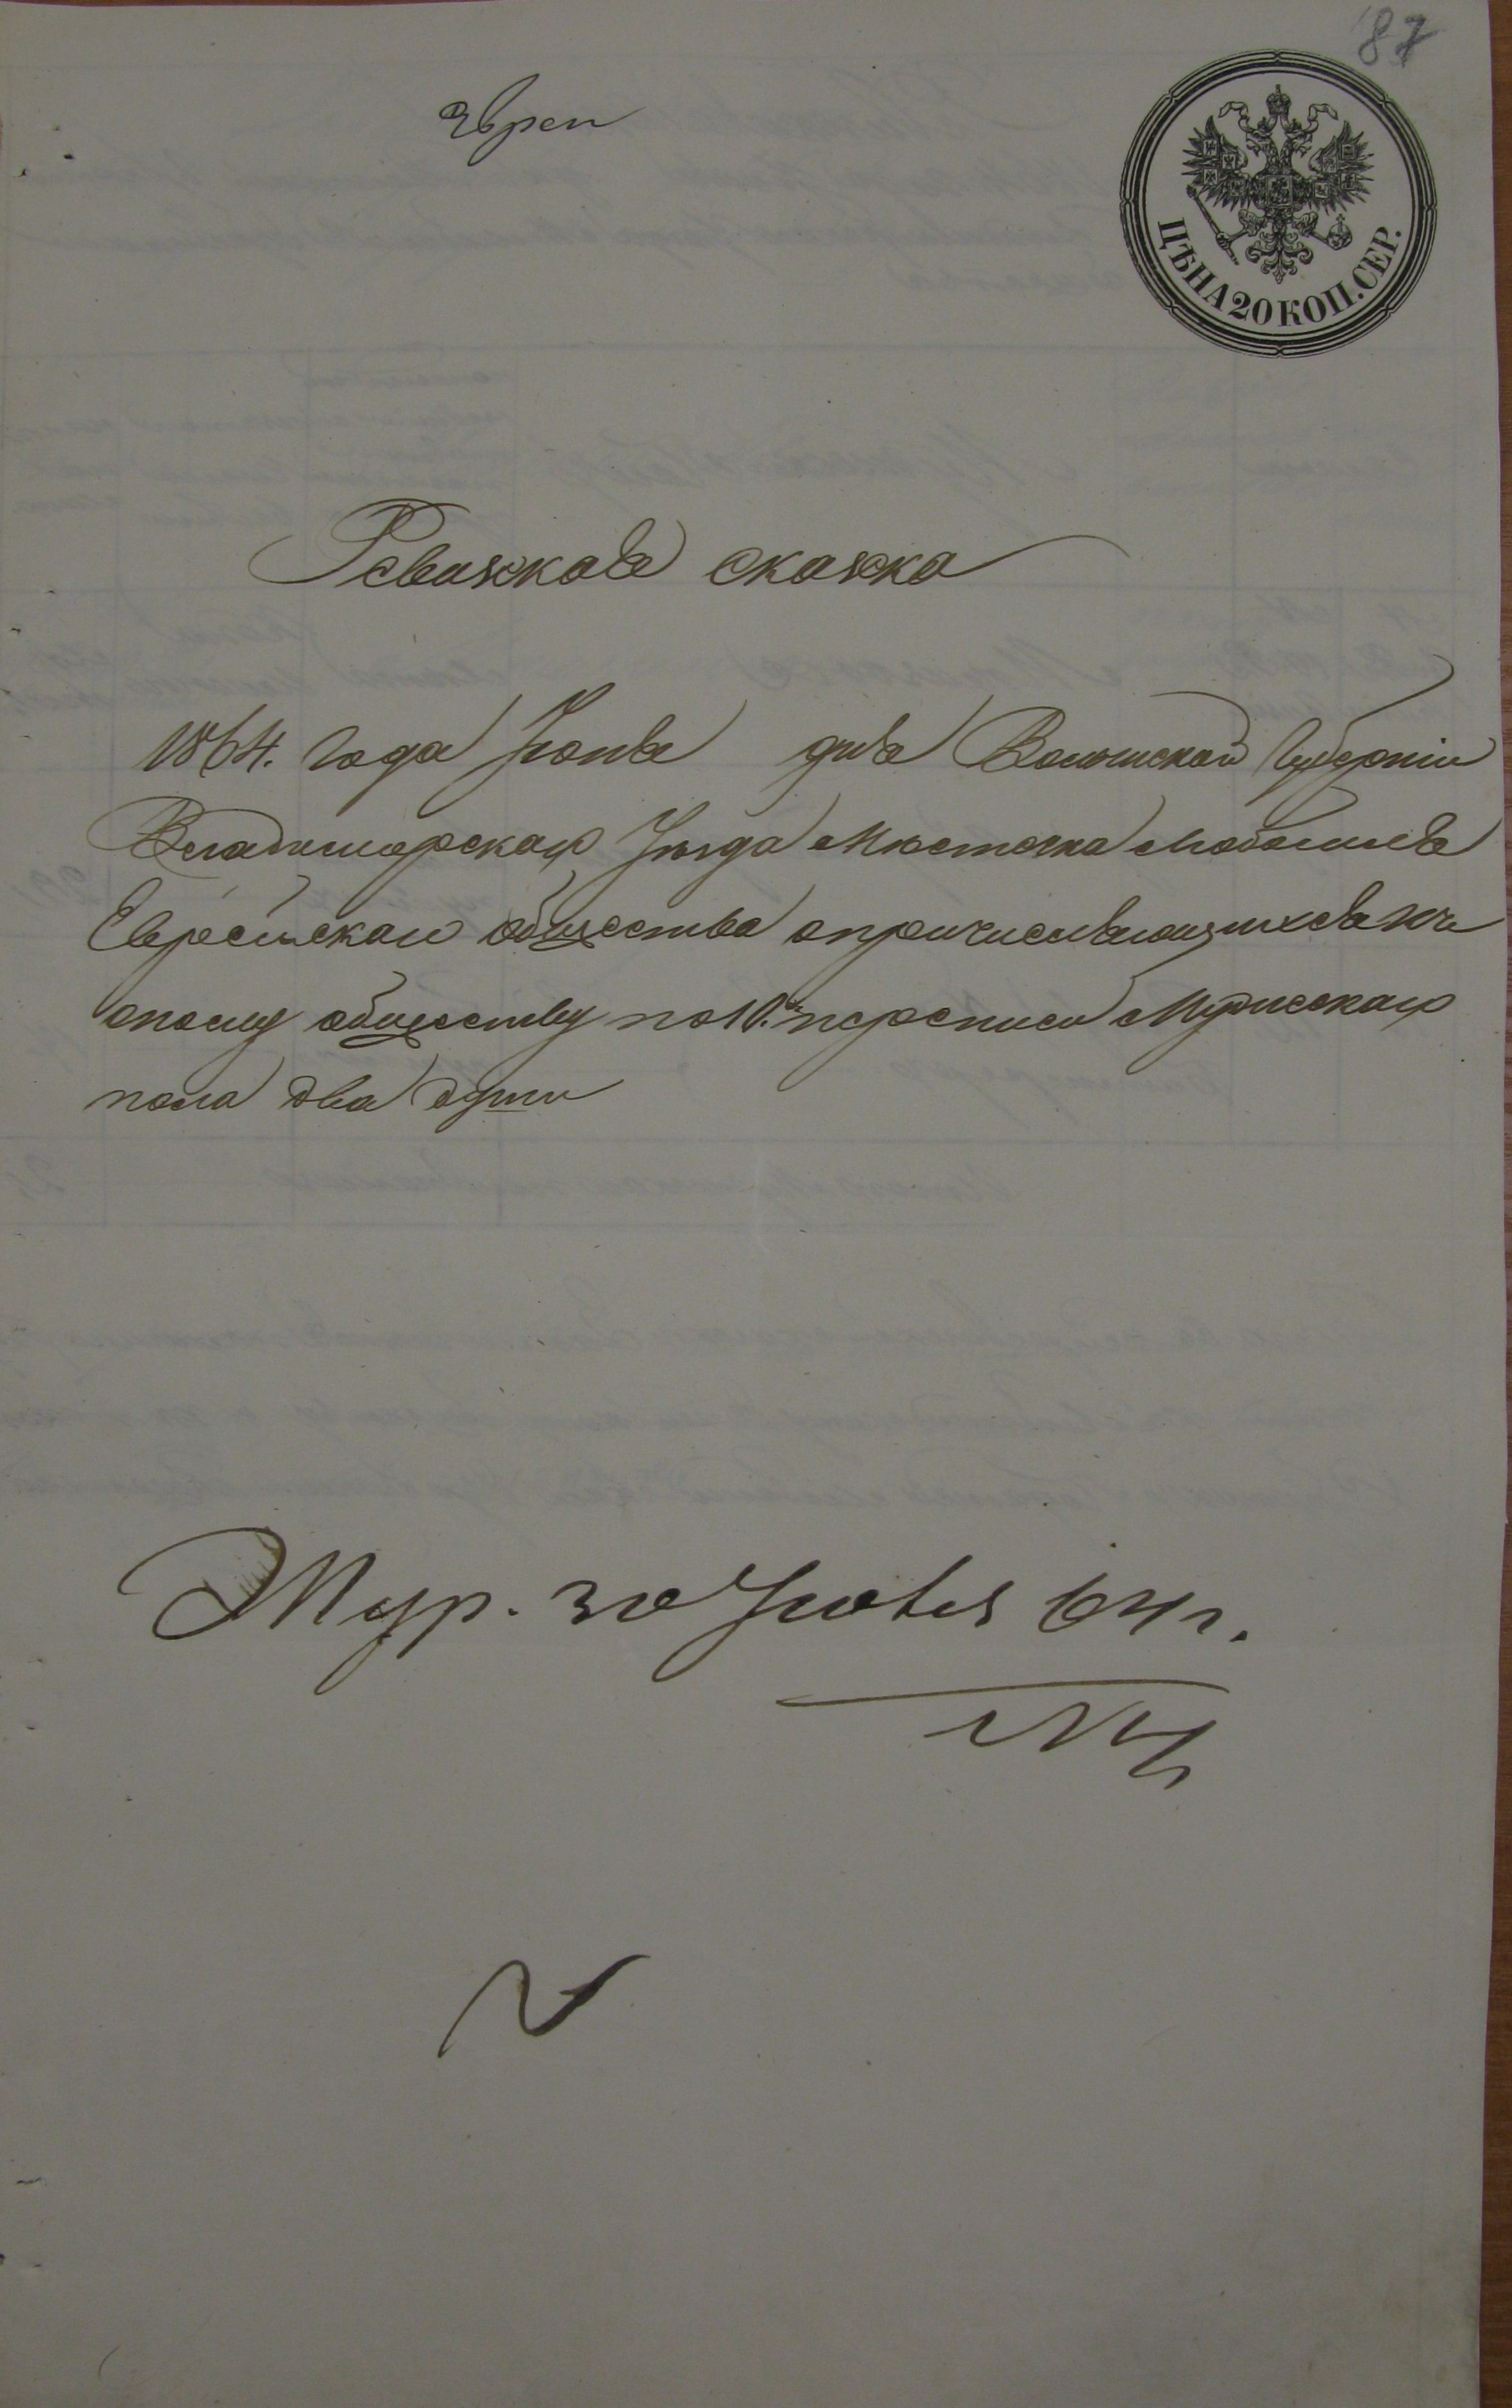 87
Евреи
ЦѢНА 20 КОП. СЕР.
Ревизская сказка
1864. года Іюня дня Волынской Губерніи
Владимірскаго Уѣзда Мѣстечка Любомля
Еврейскаго общества о причисляющихся къ
оному обществу по 10.й переписи Мужескаго
пола два души
Жур. 30 Іюля 64 г.